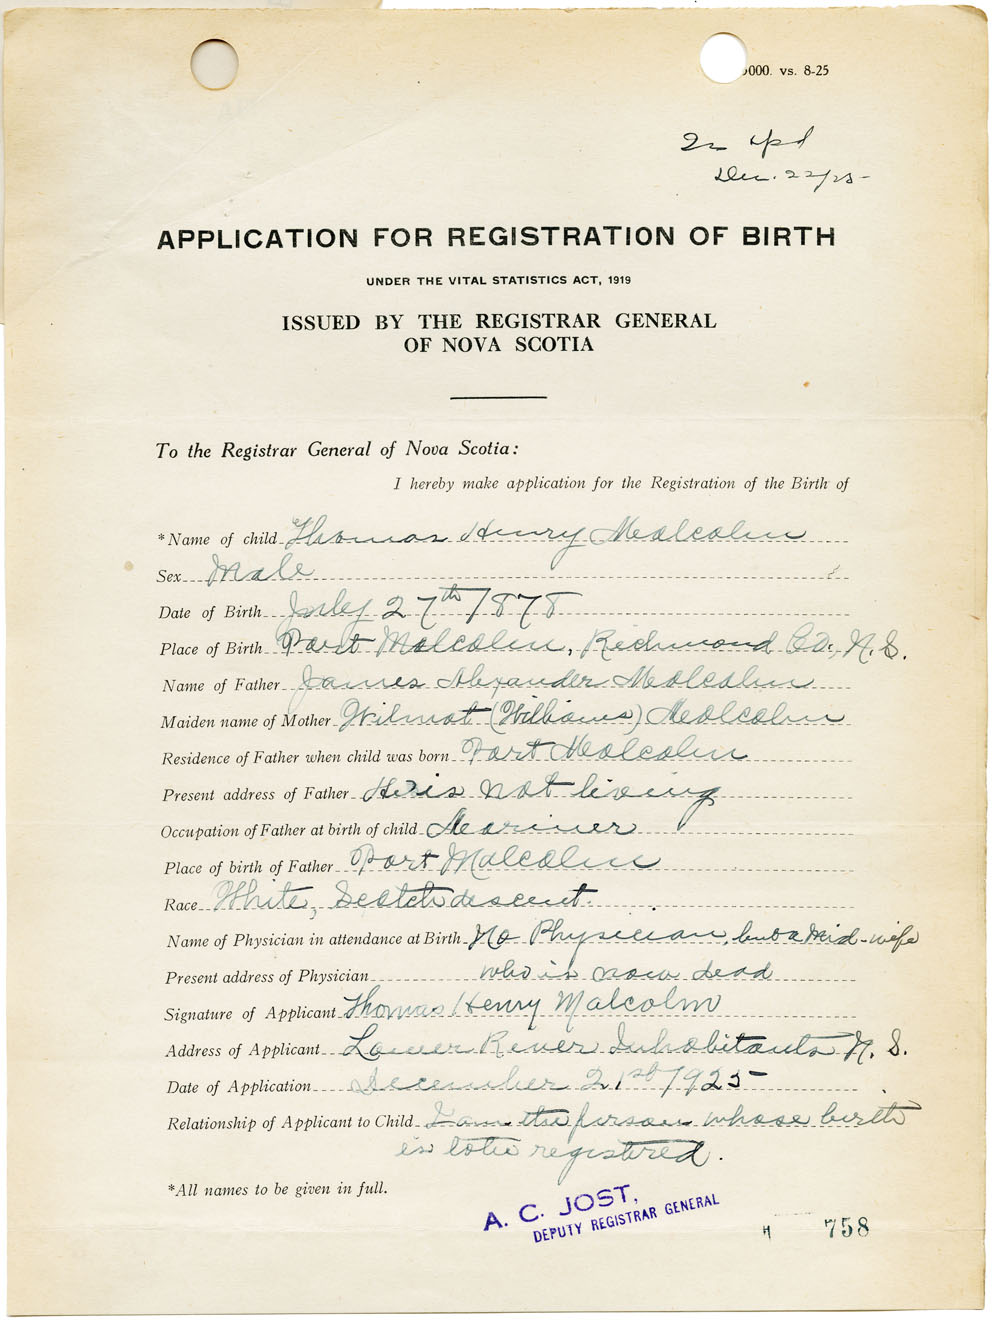 000. vs. 8-25
Dec. 22/25-
APPLICATION FOR REGISTRATION OF BIRTH
UNDER THE VITAL STATISTICS ACT, 1919
ISSUED BY THE REGISTRAR GENERAL
OF NOVA SCOTIA
To the Registrar General of Nova Scotia:
I hereby make application for the Registration of the Birth of
*Name of child Thomas Henry Malcolm
Sex Male
Date of Birth July 27th 1878
Place of Birth Port Malcolm, Richmond Co., N.S.
Name of Father James Alexander Malcolm
Maiden name of Mother Wilmot (Williams) Malcolm
Residence of Father when child was born Port Malcolm
Present address of Father He is not living
Occupation of Father at birth of child Mariner
Place of birth of Father Port Malcolm
Race White, Scotch descent.
Name of Physician in attendance at Birth No Physician, but a Mid-wife
Present address of Physician who is now dead
Signature of Applicant Thomas Henry Malcolm
Address of Applicant Lower River Inhabitants N.S.
Date of Application December 21st 1925
Relationship of Applicant to Child I am the person whose birth
is to be registered.
*All names to be given in full.
A. C. JOST,
DEPUTY REGISTRAR GENERAL
758